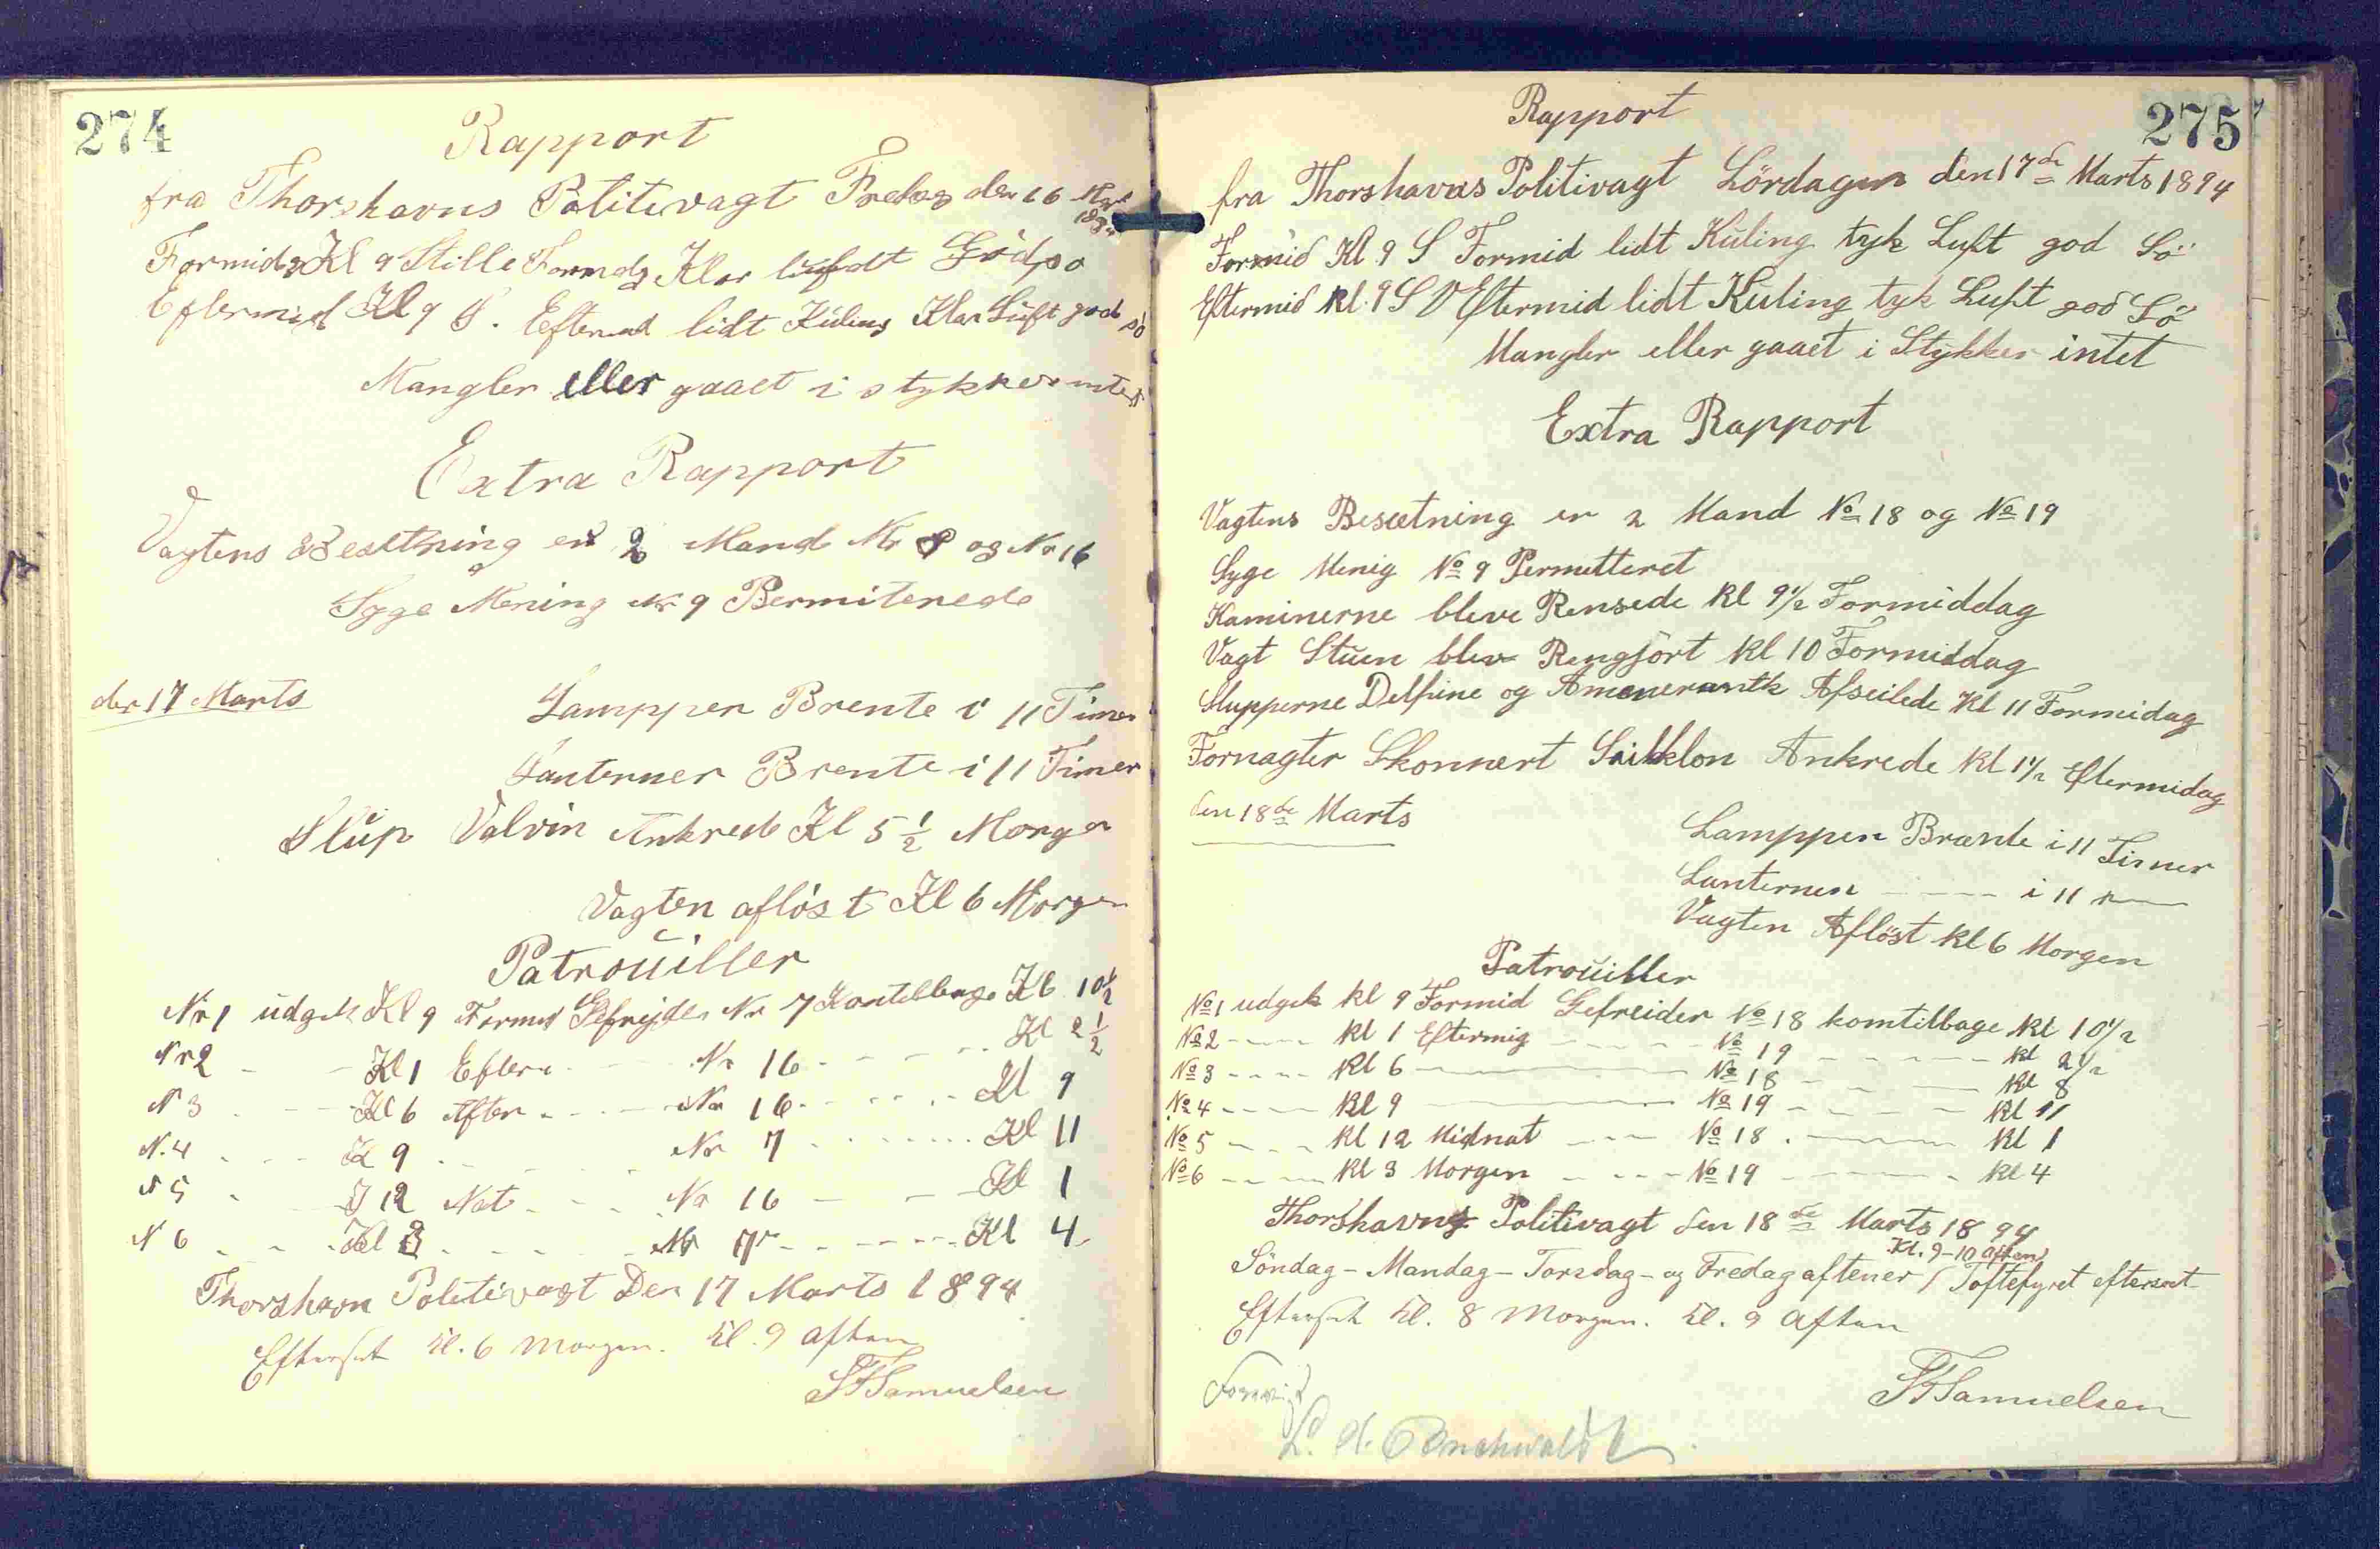 274
Rapport
fra Thorshavns Politivagt Fredag den 16 Mart
1894
Formidg Kl 9 Stille Formdg Klar luft Godso
Eftermid Kl 9 S. Eftermd lidt Kuling Klar Luft god sö
Mangler eller gaaet i stykker intet
Extra Rapport
Vagtens Besetning er 2 Mand Nr og Nr 16
Syge Mening Nr 9 Permiterede
den 17 Marts
Lamppen Brente i 11 Timer
Lanterner Brente i 11 Timer
Slup Valvin Ankrede Kl 5 1/2 Morgen
Vagten aflöst Kl 6 Morgen
Patrouiller
Nr 1 udgik Kl 9 Formid Gefrejder Nr 7 Komtilbage Kl 10 1/2
Nr 2 - - Kl 1 Efterm - - Nr 16 - - - - Kl 2 1/2
N 3 - - - Kl 6 Aften - - - Nr 16 - - - - Kl 9
N. 4 - - - Kl 9 - - - - Nr 7 - - - - Kl 11
N 5 - - 12 Nat - - - Nr 16 - - - Kl 1
N 6 - - - Kl 3 - - - - Nr 7 - - - - Kl 4
Thorshavn Politivagt Den 17 Marts 1894
Efterset kl. 6 Morgen. kl. 9 aften
Samuelsen
Rapport
275
fra Thorshavns Politivagt Lördagen den 17de Marts 1894
Formid Kl 9 S Formid lidt Kuling tyk Luft god Sö
Eftermid Kl. 9 SV Eftermid lidt Kuling tyk Luft god Sö
Mangler eller gaaet i Stykker intet
Extra Rapport
Vagtens Besætning er 2 Mand No 18 og No 19
Syge Menig No 9 Permitteret
Kaminerne bleve Rensede Kl 9 1/2 Formiddag
Vagt Stuen blev Rengjört Kl 10 Formiddag
Slupperne Delfine og Afseilede Kl 11 Formidag
Skonnert Ankrede Kl 1 1/2 Eftermidag
den 18de Marts
Lamppen Brænte i 11 Timer
Lanternen - - - - i 11 "
Vagten Aflöst Kl 6 Morgen
Patrouiller
No 1 udgik Kl 9 Formid Gefreider No 18 komtilbage Kl 10 1/2
No 2 - - - - Kl 1 Eftermig - - - - No 19 - - - - Kl 2 1/2
No 3 - - - - Kl 6 - - - - No 18 - - - - Kl 8
No 4 - - - - Kl 9 - - - - No 19 - - - - Kl 11
No 5 - - - - Kl 12 Midnat - - - No 18 - - - - Kl 1
No 6 - - - - Kl 3 Morgen - - - No 19 - - - - Kl 4
Thorshavns Politivagt den 18de Marts 1894
Kl. 9-10 aften
Söndag - Mandag - Torsdag - og Fredag aftener / Toftefyret efterset
Efterset kl. 8 Morgen. kl. 9 aften
Samuelsen